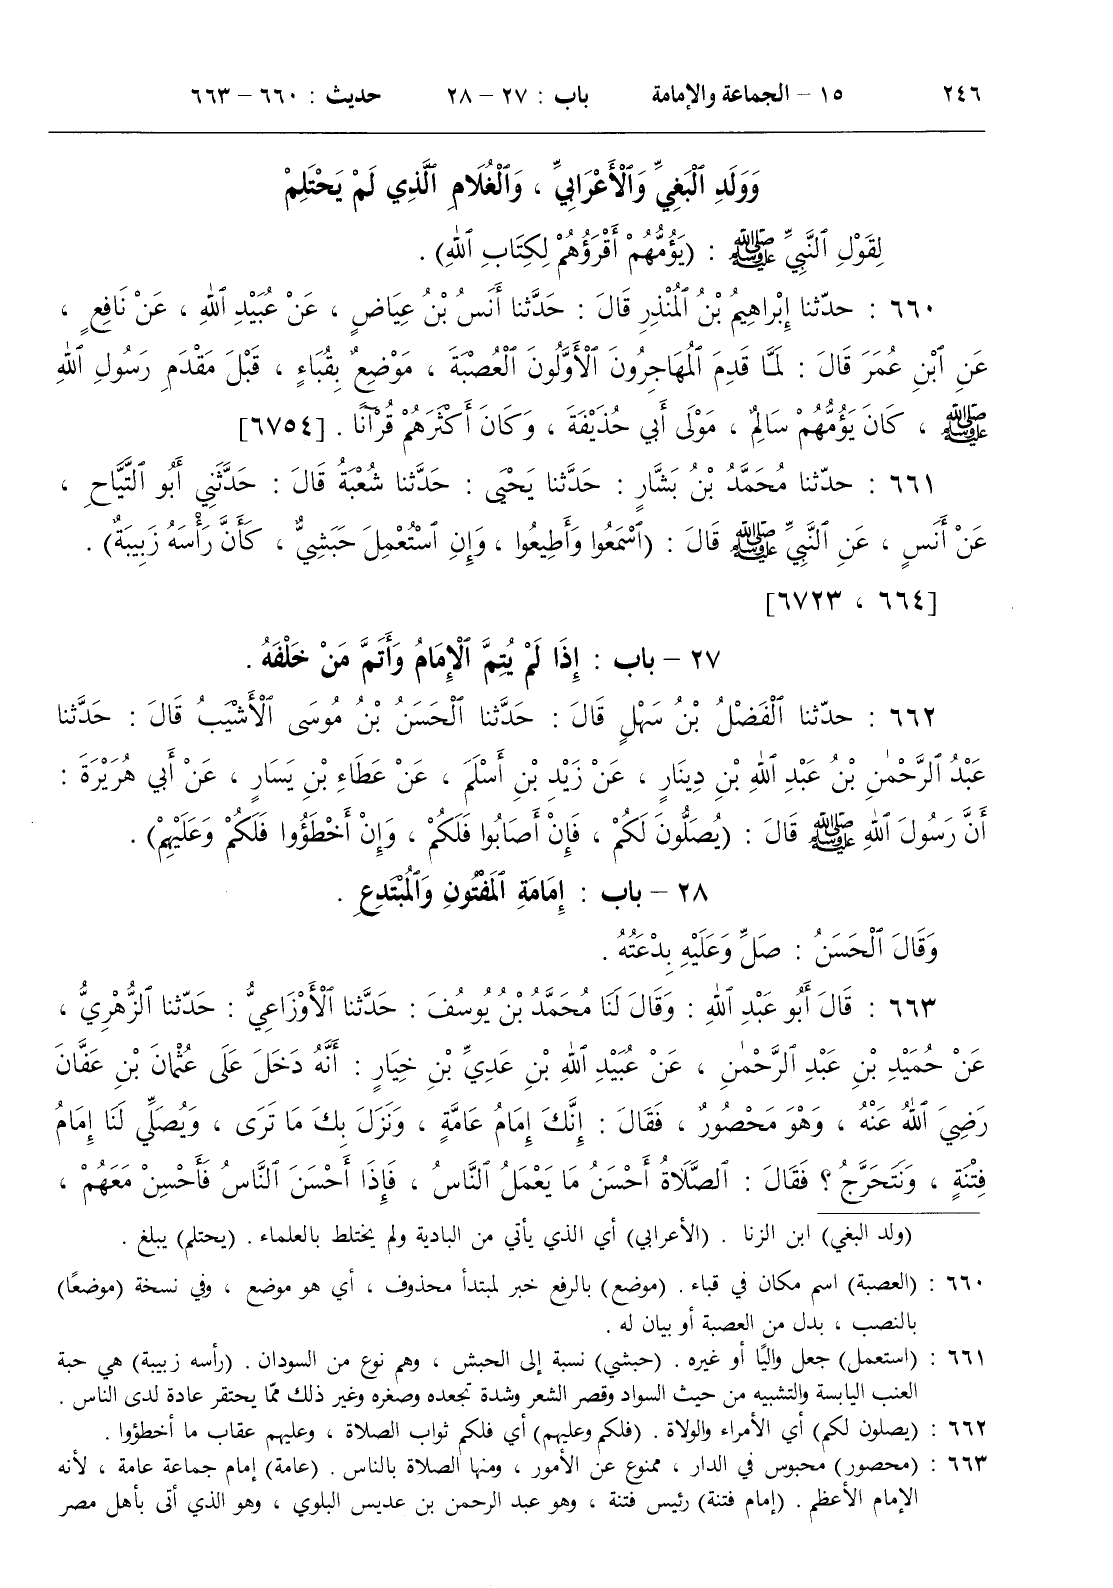 ٢٤٦ ١٥ – الجماعة والإمامة باب : ٢٧ – ٢٨ حديث : ٦٦٠ – ٦٦٣
وَوَلَدِ ٱلْبَغِيِّ وَٱلْأَعْرَابِيِّ ، وَٱلْغُلَامِ ٱلَّذِي لَمْ يَحْتَلِمْ
لِقَوْلِ ٱلنَّبِيِّ ﷺ : (يَؤُمُّهُمْ أَقْرَؤُهُمْ لِكِتَابِ ٱللهِ) .
٦٦٠ : حدّثنا إِبْراهِيمُ بْنُ ٱلْمُنْذِرِ قالَ : حَدَّثنا أَنَسُ بْنُ عِيَاضٍ ، عَنْ عُبَيْدِ ٱللهِ ، عَنْ نَافِعٍ ،
عَنِ ٱبْنِ عُمَرَ قالَ : لَمَّا قَدِمَ ٱلْمُهَاجِرُونَ ٱلْأَوَّلُونَ ٱلْعُصْبَةَ ، مَوْضِعٌ بِقُبَاءٍ ، قَبْلَ مَقْدَمِ رَسُولِ ٱللهِ
ﷺ ، كَانَ يَؤُمُّهُمْ سَالِمٌ ، مَوْلَى أَبي حُذَيْفَةَ ، وَكَانَ أَكْثَرَهُمْ قُرْآنًا . [٦٧٥٤]
٦٦١ : حدّثنا مُحَمَّدُ بْنُ بَشَّارٍ : حَدَّثنا يَحْيَى : حَدَّثنا شُعْبَةُ قَالَ : حَدَّثَنِي أَبُو ٱلتَّيَّاحِ ،
عَنْ أَنَسٍ ، عَنِ ٱلنَّبِيِّ ﷺ قَالَ : (ٱسْمَعُوا وَأَطِيعُوا ، وَإِنِ ٱسْتُعْمِلَ حَبَشِيٌّ ، كَأَنَّ رَأْسَهُ زَبِيبَةٌ) .
[٦٦٤ ، ٦٧٢٣]
٢٧ – باب : إِذَا لَمْ يُتِمَّ ٱلْإِمَامُ وَأَتَمَّ مَنْ خَلْفَهُ .
٦٦٢ : حدّثنا ٱلْفَضْلُ بْنُ سَهْلٍ قَالَ : حَدَّثنا ٱلْحَسَنُ بْنُ مُوسَى ٱلْأَشْيَبُ قَالَ : حَدَّثنا
عَبْدُ ٱلرَّحْمٰنِ بْنُ عَبْدِ ٱللهِ بْنِ دِينَارٍ ، عَنْ زَيْدِ بْنِ أَسْلَمَ ، عَنْ عَطَاءِ بْنِ يَسَارٍ ، عَنْ أَبِي هُرَيْرَةَ :
أَنَّ رَسُولَ ٱللهِ ﷺ قَالَ : (يُصَلُّونَ لَكُمْ ، فَإِنْ أَصَابُوا فَلَكُمْ ، وَإِنْ أَخْطَؤُوا فَلَكُمْ وَعَلَيْهِمْ) .
٢٨ – باب : إِمَامَةِ ٱلْمَفْتُونِ وَٱلْمُبْتَدِعِ .
وَقَالَ ٱلْحَسَنُ : صَلِّ وَعَلَيْهِ بِدْعَتُهُ .
٦٦٣ : قَالَ أَبُو عَبْدِ ٱللهِ : وَقَالَ لَنَا مُحَمَّدُ بْنُ يُوسُفَ : حَدَّثنا ٱلْأَوْزَاعِيُّ : حَدّثنا ٱلزُّهْرِيُّ ،
عَنْ حُمَيْدِ بْنِ عَبْدِ ٱلرَّحْمٰنِ ، عَنْ عُبَيْدِ ٱللهِ بْنِ عَدِيِّ بْنِ خِيَارٍ : أَنَّهُ دَخَلَ عَلَى عُثْمَانَ بْنِ عَفَّانَ
رَضِيَ ٱللهُ عَنْهُ ، وَهْوَ مَحْصُورٌ ، فَقَالَ : إِنَّكَ إِمَامُ عَامَّةٍ ، وَنَزَلَ بِكَ مَا تَرَى ، وَيُصَلِّي لَنَا إِمَامُ
فِتْنَةٍ ، وَنَتَحَرَّجُ ؟ فَقَالَ : ٱلصَّلَاةُ أَحْسَنُ مَا يَعْمَلُ ٱلنَّاسُ ، فَإِذَا أَحْسَنَ ٱلنَّاسُ فَأَحْسِنْ مَعَهُمْ ،
(ولد البغي) ابن الزنا . (الأعرابي) أي الذي يأتي من البادية ولم يختلط بالعلماء . (يحتلم) يبلغ .
٦٦٠ : (العصبة) اسم مكان في قباء . (موضع) بالرفع خبر لمبتدأ محذوف ، أي هو موضع ، وفي نسخة (موضعًا)
بالنصب ، بدل من العصبة أو بيان له .
٦٦١ : (استعمل) جعل واليًا أو غيره . (حبشي) نسبة إلى الحبش ، وهم نوع من السودان . (رأسه زبيبة) هي حبة
العنب اليابسة والتشبيه من حيث السواد وقصر الشعر وشدة تجعده وصغره وغير ذلك ممّا يحتقر عادة لدى الناس .
٦٦٢ : (يصلون لكم) أي الأمراء والولاة . (فلكم وعليهم) أي فلكم ثواب الصلاة ، وعليهم عقاب ما أخطؤوا .
٦٦٣ : (محصور) محبوس في الدار ، ممنوع عن الأمور ، ومنها الصلاة بالناس . (عامة) إمام جماعة عامة ، لأنه
الإمام الأعظم . (إمام فتنة) رئيس فتنة ، وهو عبد الرحمن بن عديس البلوي ، وهو الذي أتى بأهل مصر